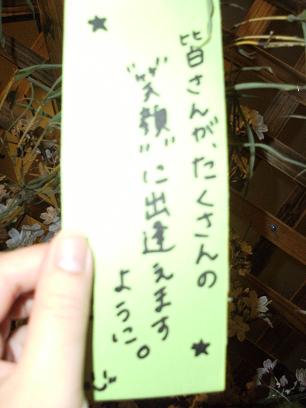 皆さんが、たくさんの
"笑顔"に出逢えます
ように。